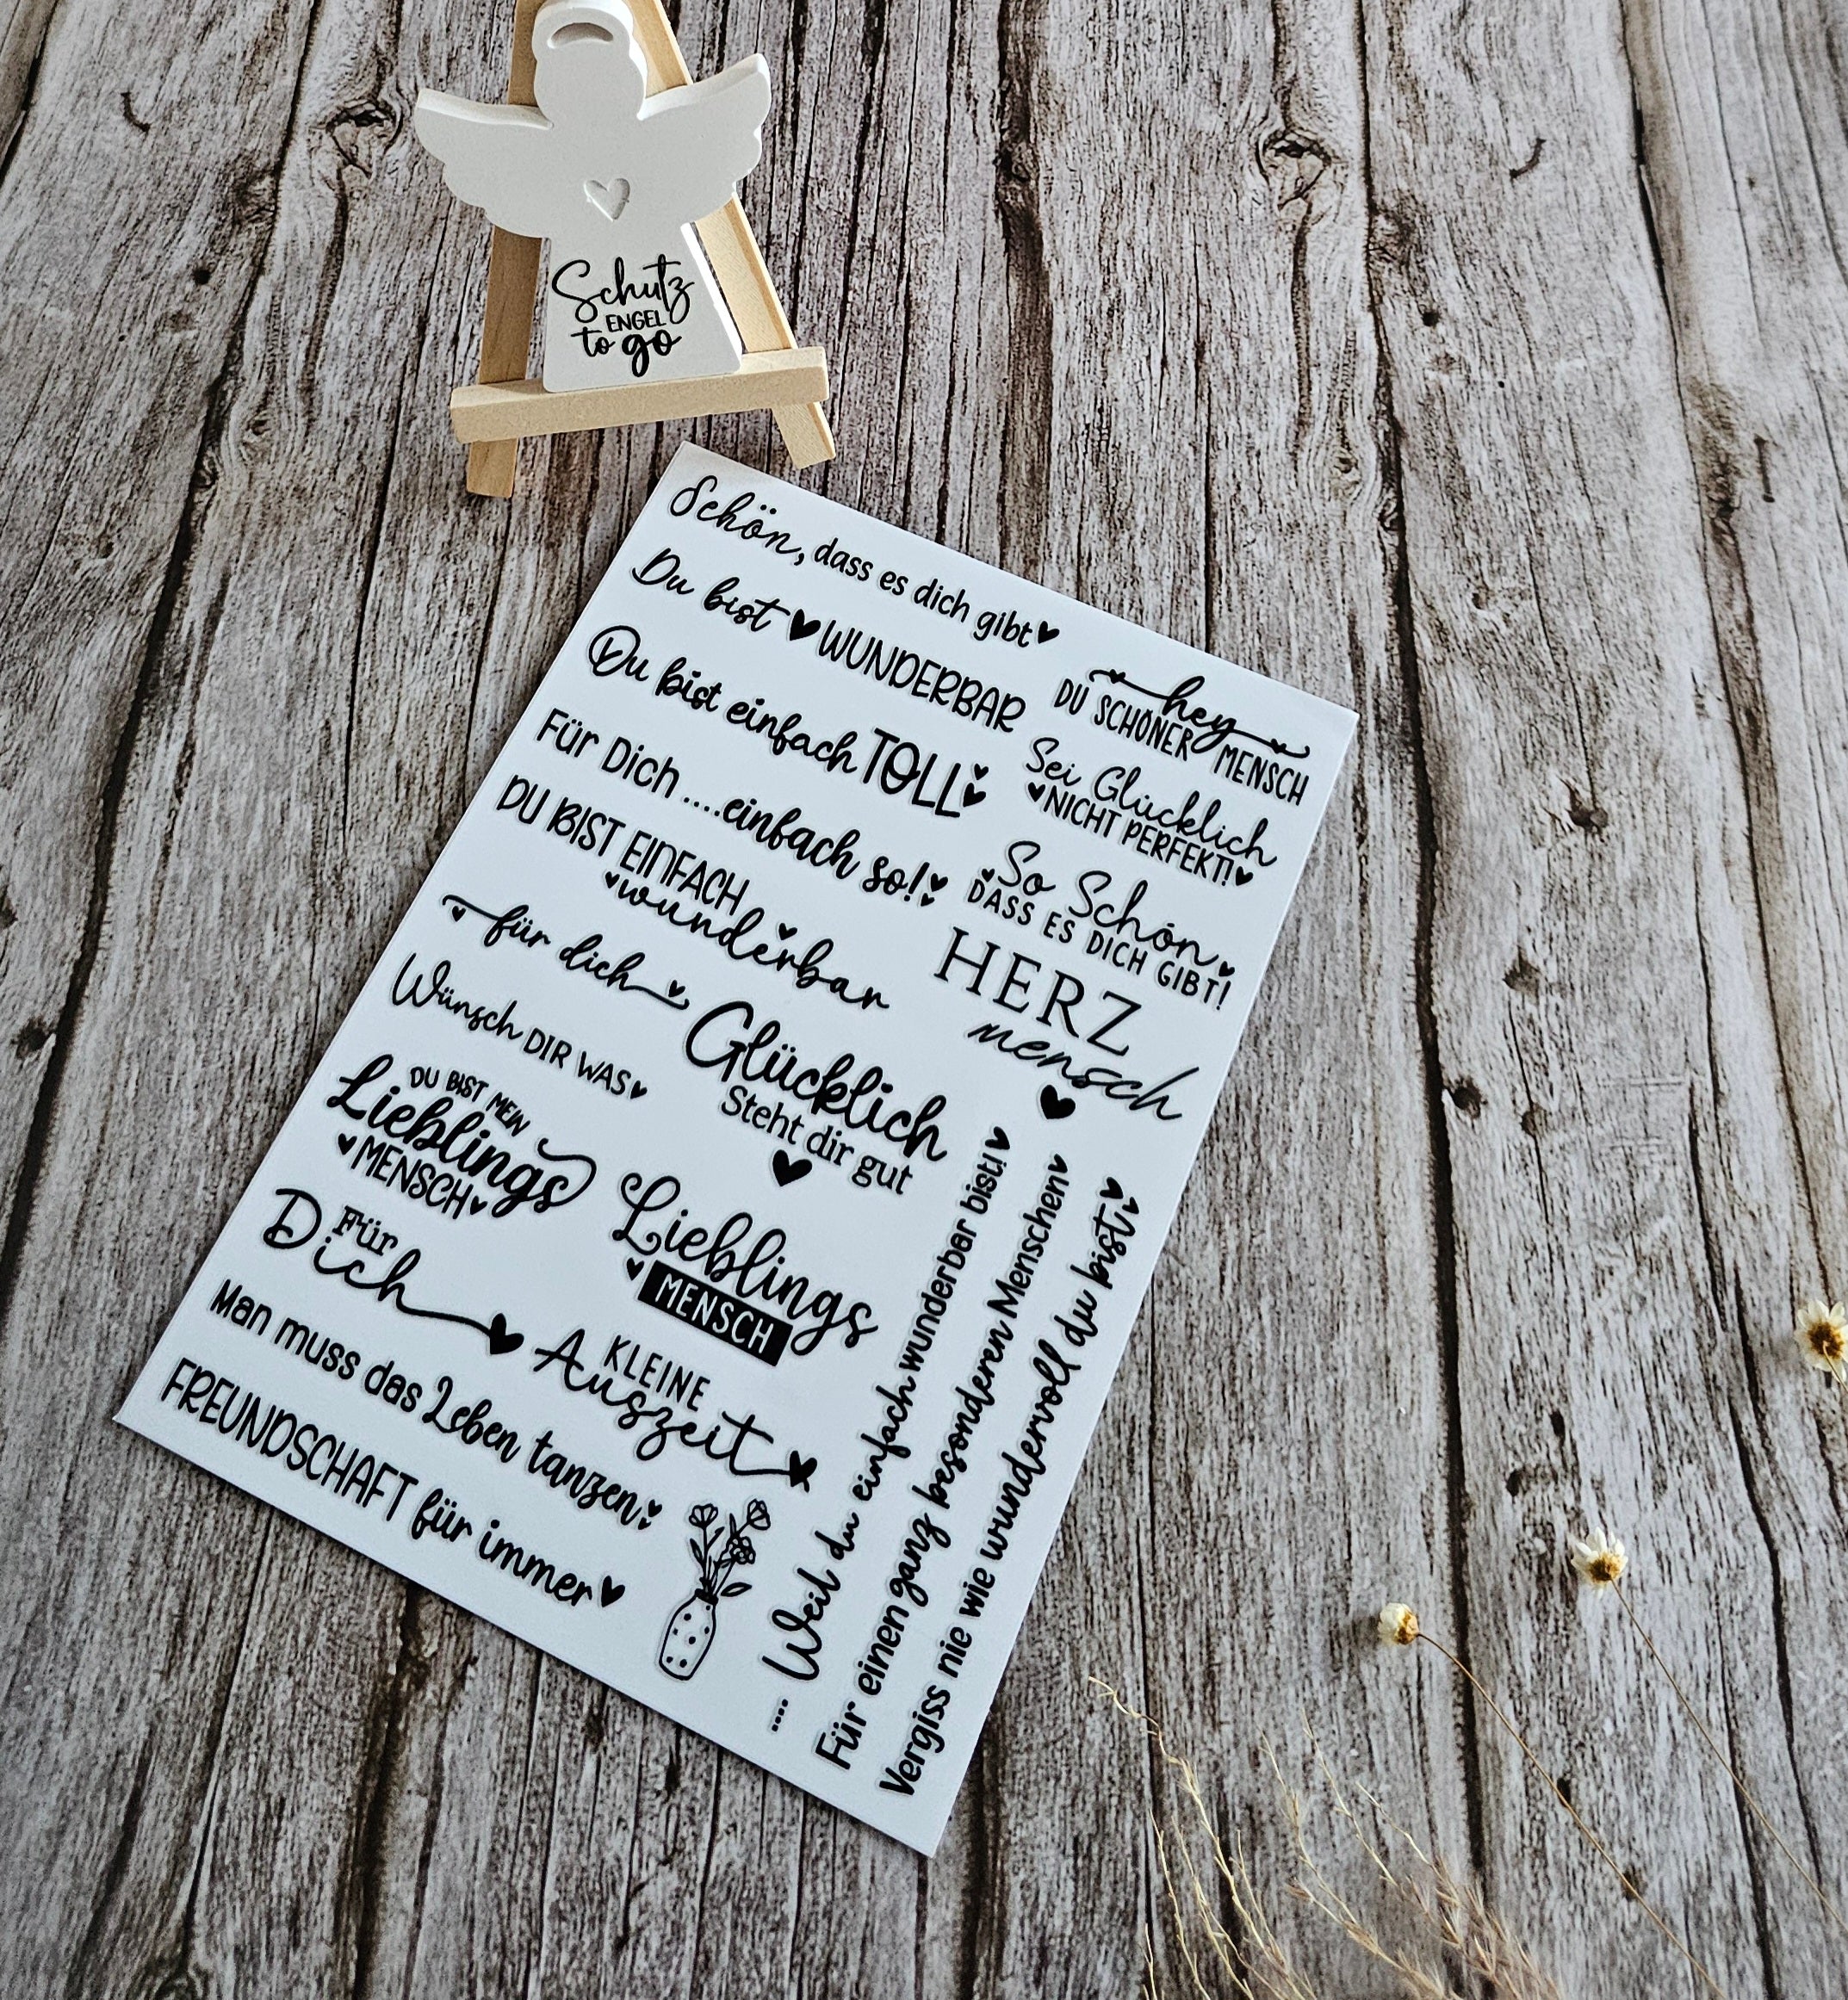 Schutz
ENGEL
to go
Schön, dass es dich gibt
Du bist WUNDERBAR
Du bist einfach TOLL
Für Dich ....einfach so!
DU BIST EINFACH
wunderbar
für dich
Wünsch DIR WAS
DU BIST MEIN
Lieblings
MENSCH
Für
Dich
Man muss das Leben tanzen
FREUNDSCHAFT für immer
hey
DU SCHÖNER MENSCH
Sei Glücklich
NICHT PERFEKT!
So Schön
DASS ES DICH GIBT!
HERZ
mensch
Glücklich
Steht dir gut
Lieblings
MENSCH
KLEINE
Auszeit
.... Weil du einfach wunderbar bist!
Für einen ganz besonderen Menschen
Vergiss nie wie wundervoll du bist